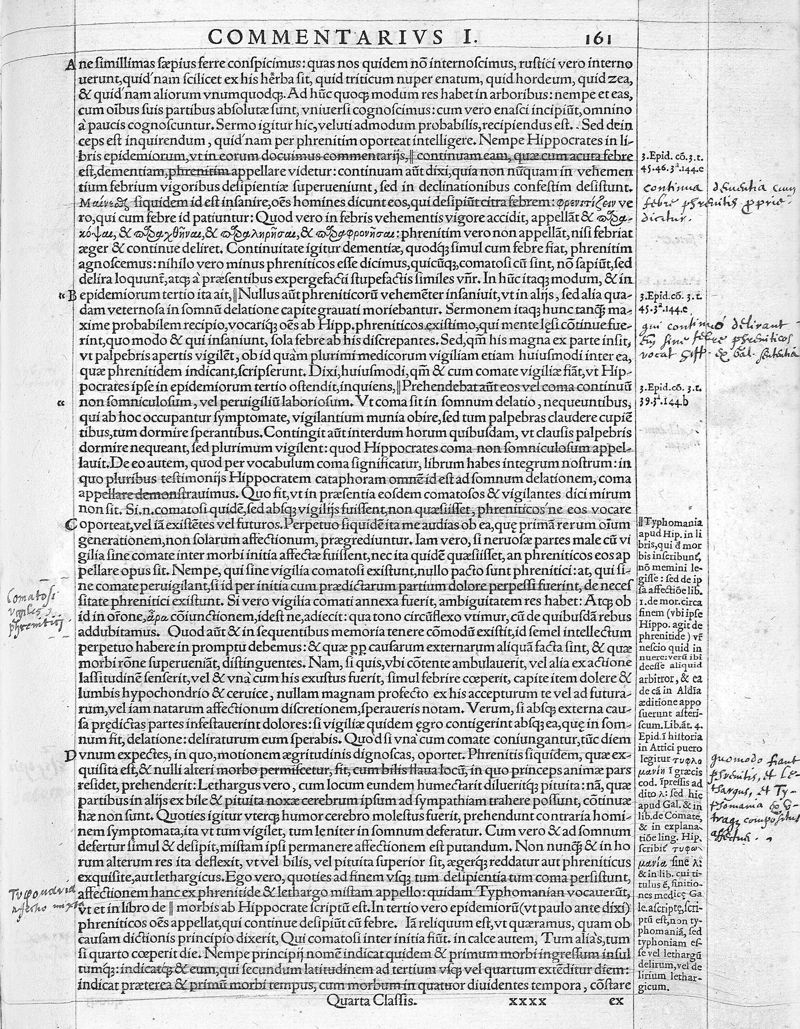 COMMENTARIVS I. 161
A ne simillimas sæpius ferre conspicimus: quas nos quidem nõ internoscimus, rustici vero interno
uerunt, quid'nam scilicet ex his hêrba sit, quid triticum nuper enatum, quid hordeum, quid zea,
& quid'nam aliorum vnumquodq;. Ad hũc quoq; modum res habet in arboribus: nempe et eas,
cum oĩbus suis partibus absolutæ sunt, vniuersi cognoscimus: cum vero enasci incipiũt, omnino
à paucis cognoscuntur. Sermo igitur hic, veluti admodum probabilis, recipiendus est. Sed dein
ceps est inquirendum, quid'nam per phrenitim oporteat intelligere. Nempe Hippocrates in li-
bris epidemiorum, vt in eorum docuimus commentarijs, ‖ continuam eam, quæ cum acura febre
est, dementiam, phrenitim appellare videtur: continuam aũt dixi, quia non nũquam in vehemen
tium febrium vigoribus desipientiæ superueniunt, sed in declinationibus confestim desistunt.
siquidem id est insanire, oẽs homines dicunt eos, qui desipiũt citra febrem: φρενιτίζειν ve
ro, qui cum febre id patiuntur: Quod vero in febris vehementis vigore accidit, appellãt &
: phrenitim vero non appellãt, nisi febriat
æger & continue deliret. Continuitate igitur dementiæ, quodq; simul cum febre fiat, phrenitim
agnoscemus: nihilo vero minus phreniticos esse dicimus, quicũq;, comatosi cũ sint, nõ sapiũt, sed
delira loquunt̃, atq; à præsentibus expergefacti stupefactis similes vñr. In hũc itaq; modum, & in
B epidemiorum tertio ita ait, ‖ Nullus aũt phreniticorũ vehemẽter insaniuit, vt in alijs, sed alia qua-
dam veternosa in somnũ delatione capite grauati moriebantur. Sermonem itaq; hunc tanq̃ ma-
xime probabilem recipio, vocariq; oẽs ab Hipp. phreniticos existimo, qui mente lęsi cõtinue fue-
rint, quo modo & qui insaniunt, sola febre ab his discrepantes. Sed, qm̃ his magna ex parte insit,
vt palpebris apertis vigilẽt, ob id quàm plurimi medicorum vigiliam etiam huiusmodi inter ea,
quæ phrenitidem indicant, scripserunt. Dixi, huiusmodi, qm̃ & cum comate vigiliæ fiãt, vt Hip-
pocrates ipse in epidemiorum tertio ostendit, inquiens, ‖ Prehendebat aũt eos vel coma continuũ
non somniculosum, vel peruigiliũ laboriosum. Vt coma sit in somnum delatio, nequeuntibus,
qui ab hoc occupantur symptomate, vigilantium munia obire, sed tum palpebras claudere cupiẽ
tibus, tum dormire sperantibus. Contingit aũt interdum horum quibusdam, vt clausis palpebris
dormire nequeant, sed plurimum vigilent: quod Hippocrates coma non somniculosum appel-
lauit. De eo autem, quod per vocabulum coma significatur, librum habes integrum nostrum: in
quo pluribus testimonijs Hippocratem cataphoram omnẽ id est ad somnum delationem, coma
appellare demonstrauimus. Quo fit, vt in præsentia eosdem comatosos & vigilantes dici mirum
non sit. Si.n. comatosi quidẽ, sed absq; vigilijs fuissent, non quæsiisset, phreniticos'ne eos vocare
C oporteat, vel iã existẽtes vel futuros. Perpetuo siquidẽ ita me audias ob ea, quę primã rerum oĩum
generationem, non solarum affectionum, prægrediuntur. Iam vero, si neruosæ partes male cũ vi
gilia sine comate inter morbi initia affectæ fuissent, nec ita quidẽ quæsiisset, an phreniticos eos ap
pellare opus sit. Nempe, qui sine vigilia comatosi existunt, nullo pacto sunt phrenitici: at, qui si-
ne comate peruigilant, si id per initia cum prædictarum partium dolore perpessi fuerint, de neces
sitate phrenitici existunt. Si vero vigilia comati annexa fuerit, ambiguitatem res habet: Atq; ob
id in orõne, ἆρα cõiunctionem, id est ne, adiecit: qua tono circũflexo vtimur, cũ de quibusdã rebus
addubitamus. Quod aũt & in sequentibus memoria tenere cõmodũ existit, id semel intellectum
perpetuo habere in promptu debemus: & quæ ꝓp causarum externarum aliquã facta sint, & quæ
morbi rõne superueniãt, distinguentes. Nam, si quis, vbi cõtente ambulauerit, vel alia ex actione
lassitudinẽ senserit, vel & vna cum his exustus fuerit, simul febrire cœperit, capite itẽ dolere &
lumbis hypochondrio & ceruice, nullam magnam profecto ex his accepturum te vel ad futura-
rum, vel iam natarum affectionum discretionem, speraueris notam. Verum, si absq; externa cau-
sa prędictas partes infestauerint dolores: si vigiliæ quidem ęgro contigerint absq; ea, quę in som-
num fit, delatione: deliraturum eum sperabis. Quod si vna cum comate coniungantur, tũc diem
D vnum expectes, in quo, motionem ægritudinis dignoscas, oportet. Phrenitis siquidem, quæ ex-
quisita est, & nulli alteri morbo permiscetur, fit, cum bilis flaua locũ, in quo princeps animæ pars
residet, prehenderit: Lethargus vero, cum locum eundem humectarit dilueritq; pituita: nã, quæ
partibus in alijs ex bile & pituita noxæ cerebrum ipsum ad sympathiam trahere possunt, cõtinuæ
hæ non sunt. Quoties igitur vterq; humor cerebro molestus fuerit, prehendunt contraria homi-
nem symptomata, ita vt tum vigilet, tum leniter in somnum deferatur. Cum vero & ad somnum
defertur simul & desipit, mistam ipsi permanere affectionem est putandum. Non nunq̃ & in ho
rum alterum res ita deflexit, vt vel bilis, vel pituita superior sit, ægerq; reddatur aut phreniticus
exquisite, aut lethargicus. Ego vero, quoties ad finem vsq; tum delipientia tum coma persistunt,
affectionem hanc ex phrenitide & lethargo mistam appello: quidam Typhomanian vocauerũt,
vt et in libro de ‖ morbis ab Hippocrate scriptũ est. In tertio vero epidemiorũ (vt paulo ante dixi)
phreniticos oẽs appellat, qui continue desipiũt cũ febre. Iã reliquum est, vt quæramus, quam ob
causam dictionis principio dixerit, Qui comatosi inter initia fiũt. in calce autem, Tum alias, tum
si quarto cœperit die. Nempe principij nomẽ indicat quidem & primum morbi ingressum insul
tumq;: indicatq; & eum, qui secundum latitudinem ad tertium vsq; vel quartum extẽditur diem:
indicat præterea & primũ morbi tempus, cum morbum in quatuor diuidentes tempora, cõstare
Quarta Classis. xxxx ex
3. Epid. cõ. 3. t.
45. 46. 3ª. 144. c
continua dementia cum
febre phrenitis proprie
dicitur.
3. Epid. cõ. 3. t.
45. 3ª. 144. c
qui continuo delirant
3. Epid. cõ. 3. t.
39. 3ª. 144. b
‖ Typhomania
apud Hip. in li
bris, qui d̃ mor
bis inscribunt̃,
nõ memini le-
gisse: sed de ip
sa affectiõe lib.
1. de mor. circa
finem (vbi ipse
Hippo. agit de
phrenitide) vr̃
nescio quid in
nuere: verũ ibi
deesse aliquid
arbitror, & ea
de cã in Aldia
æditione appo
suerunt asteri-
scum. Lib. ãt. 4.
Epid. ĩ historia
in Attici puero
legitur τυφλο
μανίη ĩ græcis
cod. Ipressis ad
dito λ: sed hic
apud Gal. & in
lib. de Comate,
& in explana-
tiõe ling. Hip.
scribit̃ τυφω-
μανία sine λ:
& in lib. cui ti-
tulus ẽ, finitio-
nes medicę Ga
le. ascriptę, scri-
ptũ est, non ty-
phomaniã, sed
typhoniam es-
se vel lethargũ
delirum, vel de
lirium lethar-
gicum.
quomodo fiant
phrenitis, et Le-
thargus, et Ty-
phomania
compositus
affectus.
Comatosi
vigiles
phrenitici
Τυφομανία
affectio mixta